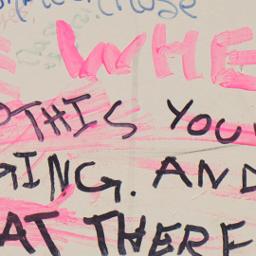 E WHE
THIS YOU
ING. AND
AT THERE